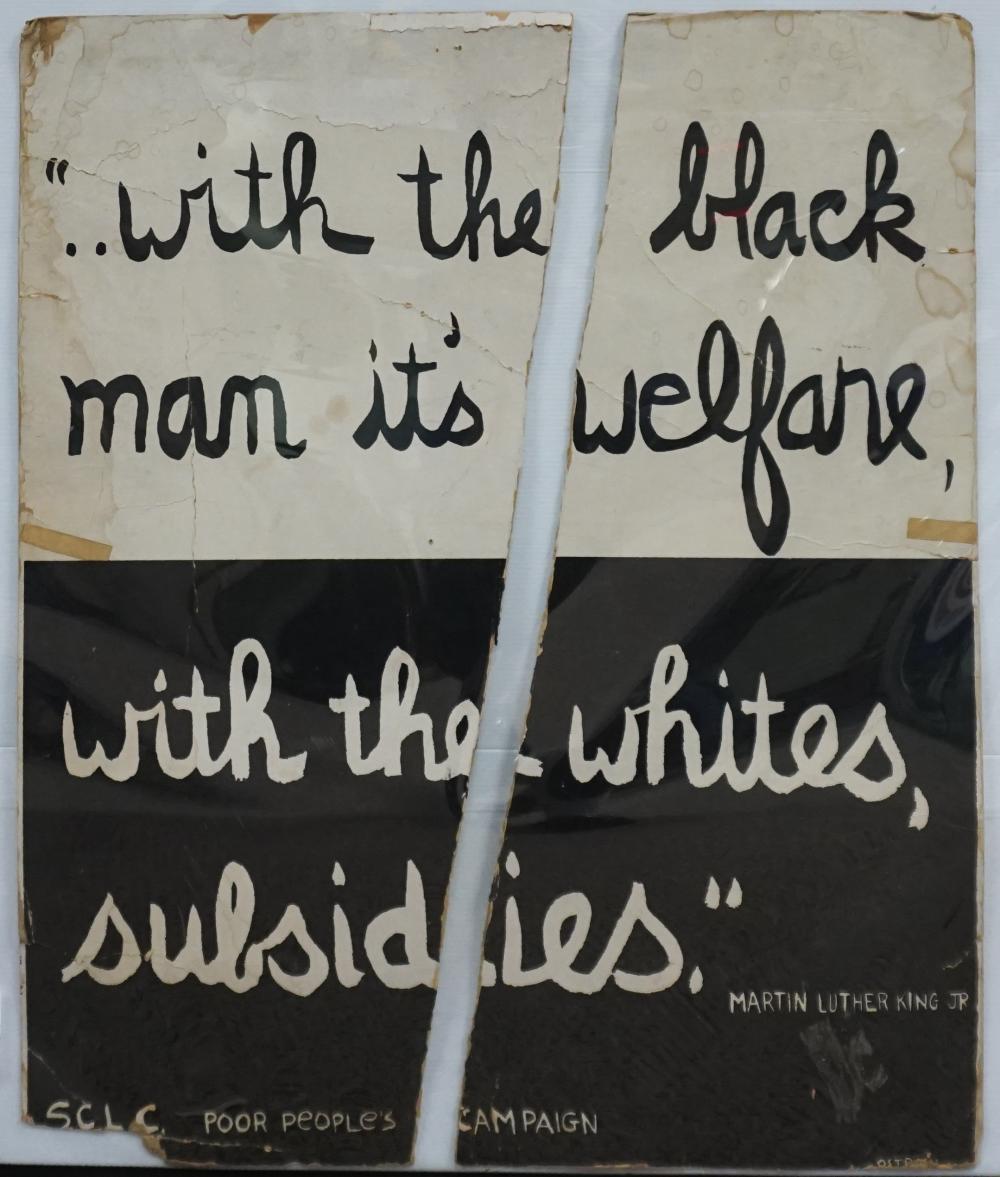 "..with the black
man it's welfare,
with the whites,
subsidies."
MARTIN LUTHER KING JR
S.C.L.C. POOR PEOPLE'S CAMPAIGN